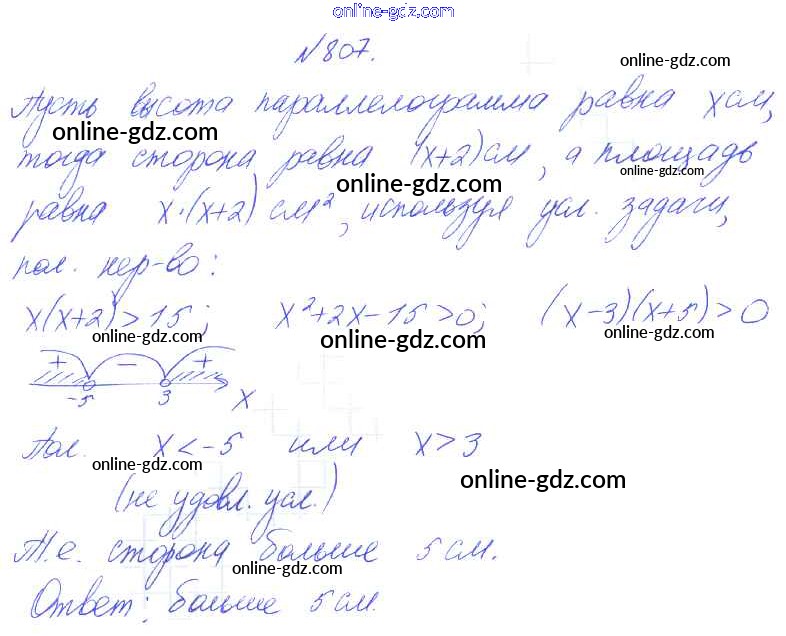 online-gdz.com
№ 807.
online-gdz.com
Пусть высота параллелограмма равна x см,
online-gdz.com
online-gdz.com
тогда сторона равна (x+2) см, а площадь
online-gdz.com
online-gdz.com
равна x·(x+2) см², используя усл. задачи,
пол. нер-во:
x(x+2)>15; x²+2x-15>0; (x-3)(x+5)>0
online-gdz.com
online-gdz.com
online-gdz.com
+ - +
-5 3 x
Пол. x<-5 или x>3
online-gdz.com
online-gdz.com
(не удовл. усл.)
Т.е. сторона больше 5 см.
online-gdz.com
Ответ: больше 5 см.
online-gdz.com